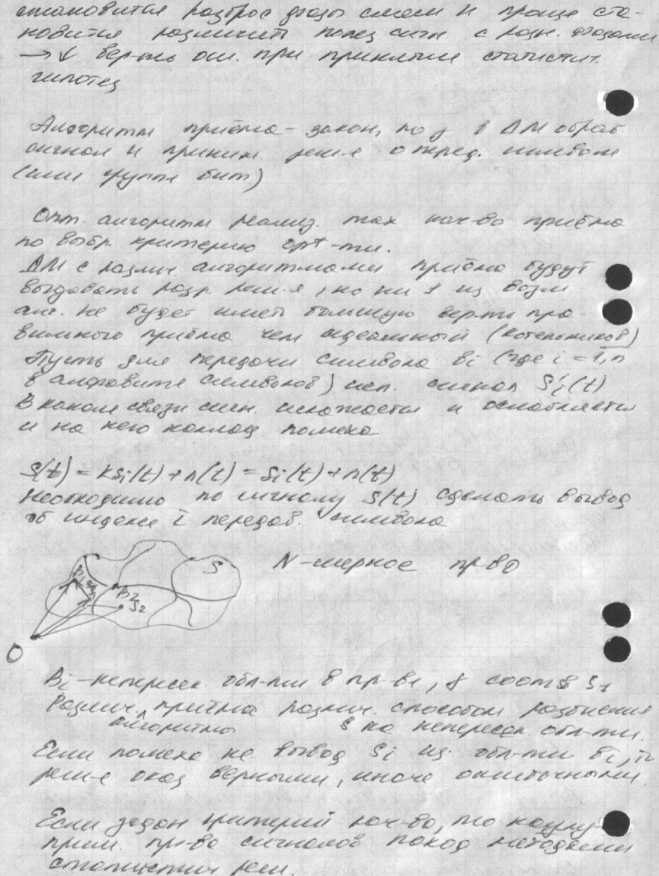 становится разброс фазы смеси и проще ста-
новится различить между собой с разн. фазами
→ ↓ вер-ть ош. при принятии статистич.
гипотез
Алгоритм приёма - закон, по у в ДМ обраб
сигнал и приним. реш-е о перед. символе
(или группе бит)
Опт. алгоритм реализ. max кач-во приёма
по выбр. критерию opt-ти.
ДМ с различ. алгоритмами приёма будут
выдавать разл. реш-я, но ни 1 из возм
алг. не будет иметь большую вер-ть пра-
вильного приёма чем идеальный (Котельников)
Пусть для передачи символа bi (где i = 1,n
в алфавите символов) исп. сигнал S'i(t)
В канале связи сигн. искажается и ослабляется
и на него наклад. помеха
S(t) = kSi(t) + n(t) = Si(t) + n(t)
Необходимо по сигналу S(t) сделать вывод
об индексе i передав. символа
S N-мерное пр-во
B2
S2
O
Bi - непересек. обл-ти в пр-ве, соотв Si
Различ. приёма различ. способом разбиения
алгоритмы S на непересек обл-ти.
Если помеха не вывод Si из обл-ти Bi, то
реш-е оказ верными, иначе ошибочными.
Если задан критерий кач-во, то наилуч
прим. пр-во сигналов наход методами
статистич реш.